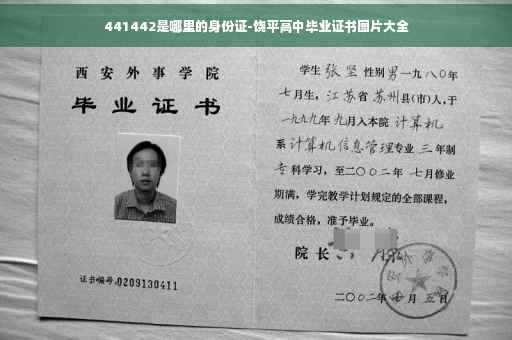 441442是哪里的身份证-饶平高中毕业证书图片大全
西安外事学院
毕业证书
证书编号:0209130411
学生 张坚 性别 男 一九八〇年
七月生，江苏省 苏州 县(市)人，于
一九九九年 九月入本院 计算机
系 计算机信息管理 专业 三 年制
专 科学习，至二〇〇二年 七月修业
期满，学完教学计划规定的全部课程，
成绩合格，准予毕业。
院长
二〇〇二年 七月 五日